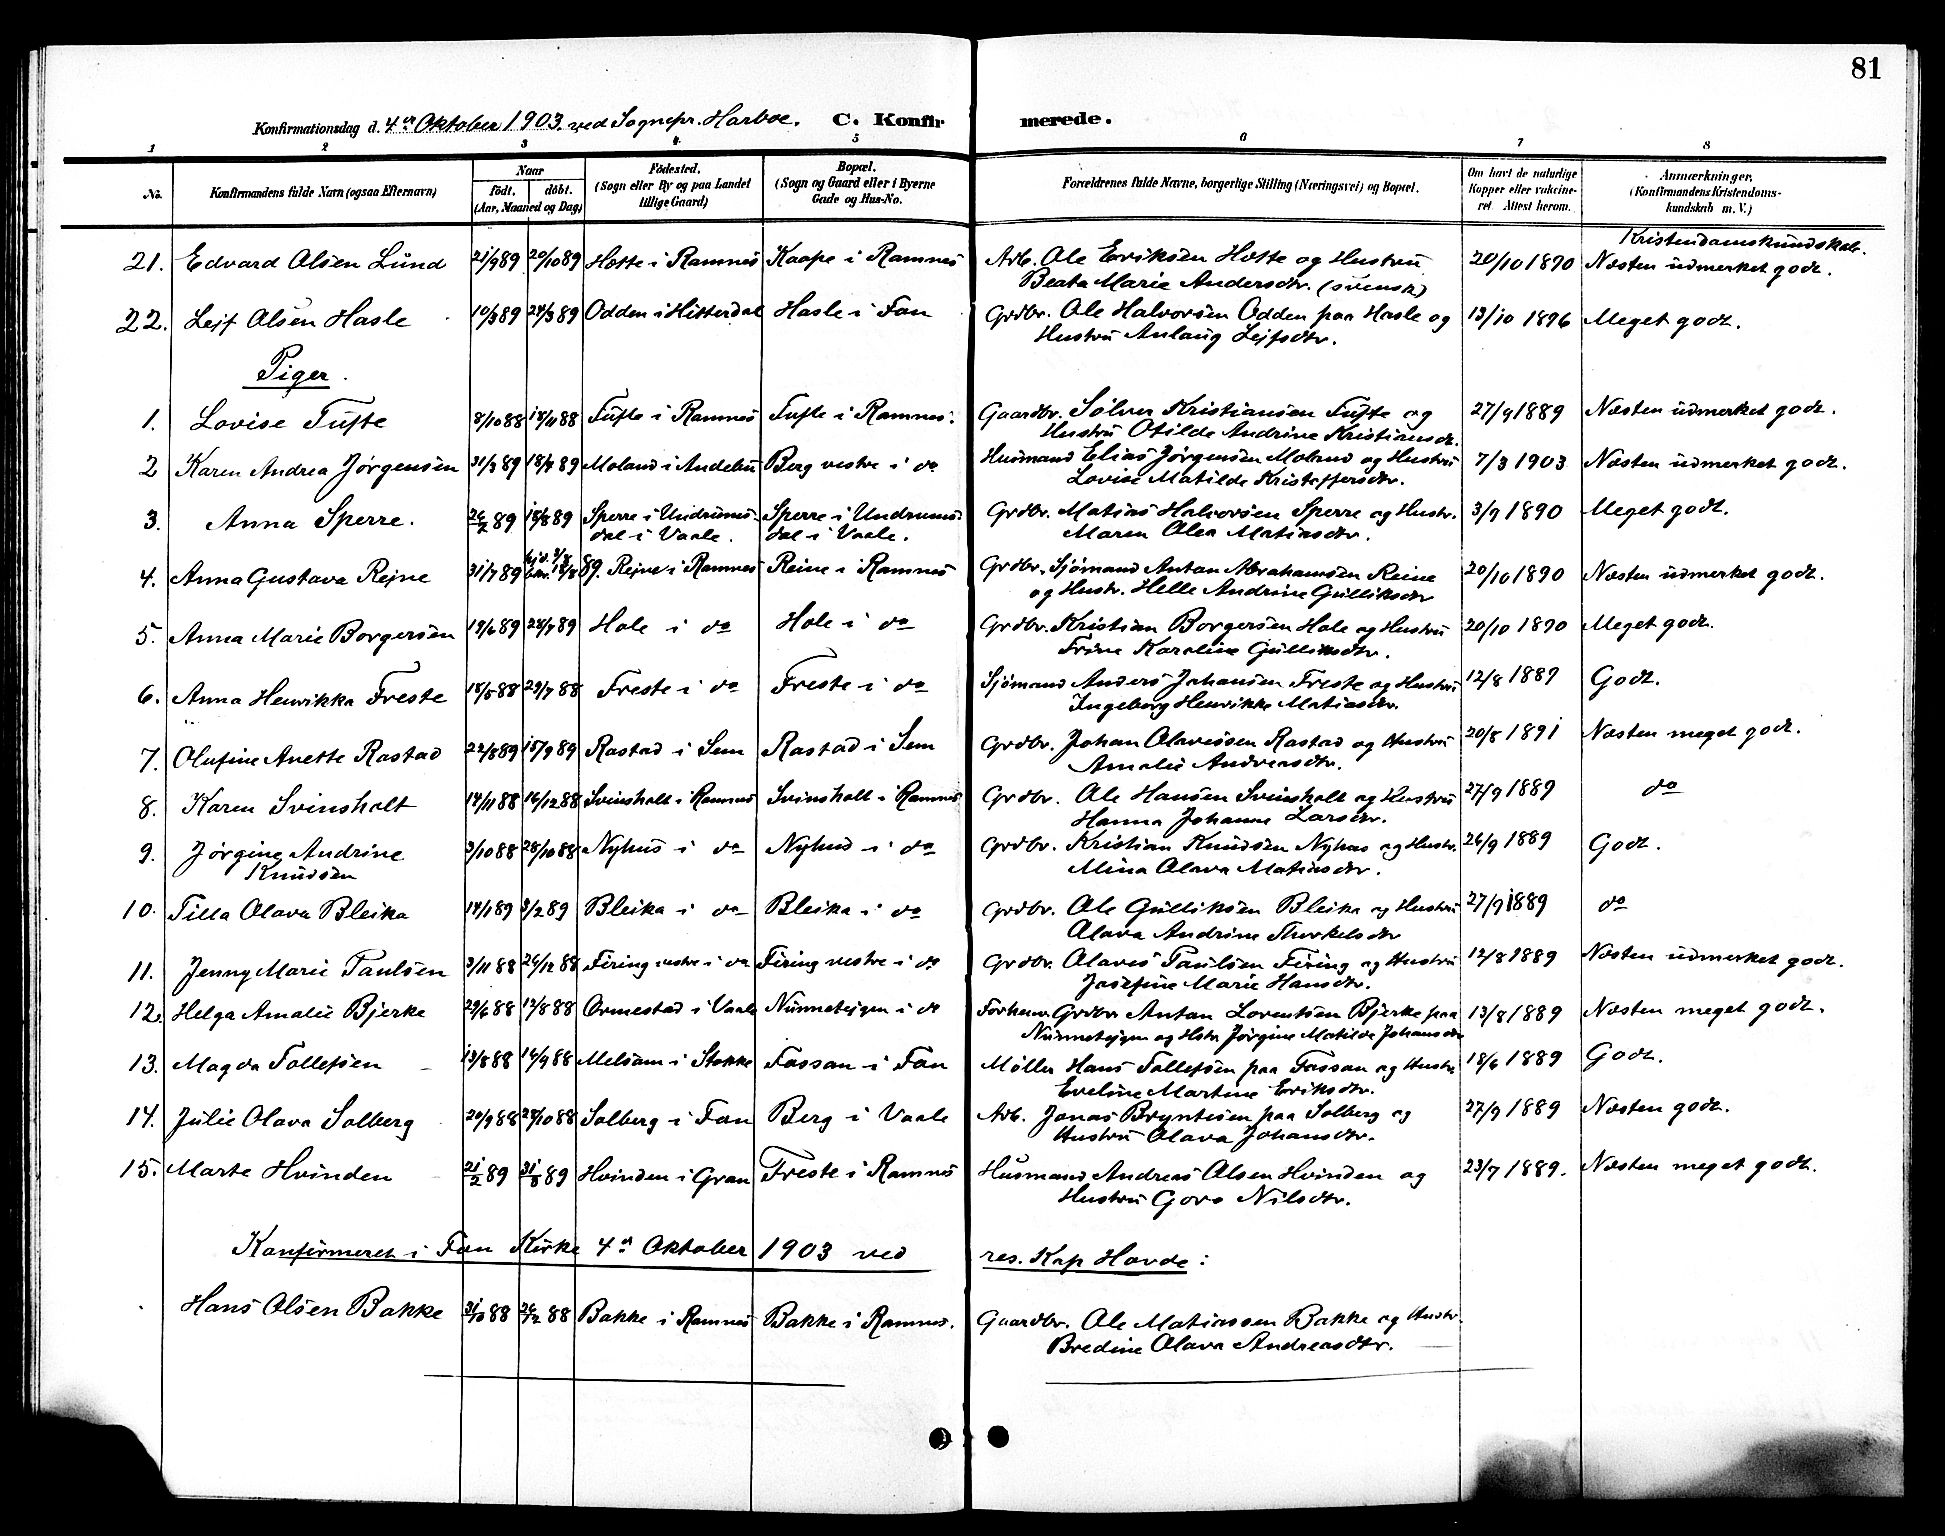 81
Konfirmationsdag d. 4de Oktober 1903 ved Sognepr. Harboe. C. Konfirmerede.
1 2 3 4. 5 6 7 8
No. Konfirmandens fulde Navn (ogsaa Efternavn) Naar født. døbt. (Aar, Maaned og Dag) Fødested. (Sogn eller By og paa Landet tillige Gaard) Bopæl. (Sogn og Gaard eller i Byerne Gade og Hus-No. Forældrenes fulde Navne, borgerlige Stilling (Næringsvei) og Bopæl. Om havt de naturlige Kopper eller vakcineret. Attest herom. Anmærkninger. (Konfirmandens Kristendomskundskab m. V.)
Kristendomskundskab.
21. Edvard Olsen Lund 21/9 89 20/10 89 Hotte i Ramnes Kaape i Ramnes Arb. Ole Eriksen Hotte og Hustru 20/10 1890 Næsten udmerket godt.
Beata Marie Andersdtr. (svensk)
22. Lejf Olsen Hasle 10/3 89 24/3 89 Odden i Hitterdal Hasle i Fon Grdbr. Ole Halvorsen Odden paa Hasle og 13/10 1896 Meget godt.
Hustru Anlaug Lejfsdtr.
Piger.
1. Lovise Tufte 8/10 88 18/11 88 Tufte i Ramnes Tufte i Ramnes. Gaardbr. Sølver Kristiansen Tufte og 27/9 1889 Næsten udmerket godt.
Hustru Otilde Andrine Kristiansdt.
2 Karen Andrea Jørgensen 31/3 89 18/4 89 Moland i Andebu Berg vestre i do Husmand Elias Jørgensen Moland og Hustru 7/3 1903 Næsten udmerket godt.
Lovise Matilde Kristoffersdtr.
3. Anna Sperre. 26/2 89 18/8 89 Sperre i Undrums- Sperre i Undrums- Grdbr. Matias Halvorsen Sperre og Hustr. 3/9 1890 Meget godt.
dal i Vaale. dal i Vaale. Maren Olea Matiasdtr.
4. Anna Gustava Rejne 31/7 89 Rejne i Ramnes Reine i Ramnes Grdbr. Sjømand Anton Abrahamsen Reine 20/10 1890 Næsten udmerket godt.
og Hustr. Helle Andrine Gulliksdtr
5. Anna Marie Borgersen 19/6 89 28/7 89 Hole i do Hole i do Grdbr. Kristian Borgersen Hole og Hustru 20/10 1890 Meget godt.
Trine Karoline Gulliksdtr.
6. Anna Henrikka Freste 18/5 88 29/7 88 Freste i do Freste i do Sjømand Anders Johansen Freste og Hustru 12/8 1889 Godt.
Ingeborg Henrikke Matiasdtr.
7. Olufine Anette Rastad 22/8 89 15/9 89 Rastad i Sem Rastad i Sem Grdbr. Johan Olavessen Rastad og Hustru 20/8 1891 Næsten meget godt.
Amalie Andreasdtr.
8. Karen Svinsholt 14/11 88 16/12 88 Svinsholt i Ramnes Svinsholt i Ramnes Grdbr. Ole Hansen Svinsholt og Hustru 27/9 1889 do
Hanna Johanne Larsdtr.
9. Jørgine Andrine 3/10 88 28/10 88 Nyhus i do Nyhus i do Grdbr. Kristian Knudsen Nyhus og Hustr. 26/9 1889 Godt.
Knudsen Mina Olava Matiasdtr.
10. Tilla Olava Bleika 14/1 89 3/2 89 Bleika i do Bleika i do Grdbr. Ole Gulliksen Bleika og Hustru 27/9 1889 do
Olava Andrine Thorkelsdtr
11. Jenny Marie Paulsen 3/11 88 26/12 88 Firing vestre i do Firing vestre i do Grdbr. Olaves Paulsen Firing og Hustru 12/8 1889 Næsten udmerket godt.
Josefine Marie Hansdtr.
12. Helga Amalie Bjerke 29/6 88 12/8 88 Ormestad i Vaale Nunnetejgen i do Forhenv. Grdbr Anton Lorentsen Bjerke paa 13/8 1889 Næsten meget godt.
Nunnetejgen og Hstr Jørgine Matilde Johansdtr
13. Magda Tollefsen 13/8 88 16/9 88 Melsom i Stokke Fossan i Fon Møller Hans Tollefsen paa Fossan og Hustru 18/6 1889 Godt.
Eveline Martine Eriksdtr.
14. Julie Olava Solberg 20/9 88 28/10 88 Solberg i Fon Berg i Vaale Arb. Jonas Bryntesen paa Solberg og 27/9 1889 Næsten godt.
Hustru Olava Johansdtr.
15. Marte Hvinden 21/2 89 31/8 89 Hvinden i Gran Freste i Ramnes Husmand Andreas Olsen Hvinden og 23/7 1889. Næsten meget godt.
Hustru Goro Nilsdtr.
Konfirmeret i Fon Kirke 4de Oktober 1903 ved res. Kap Hovde:
Hans Olsen Bakke 31/10 88 26/12 88 Bakke i Ramnes Bakke i Ramnes. Gaardbr. Ole Matiassen Bakke og Hustr.
Bredine Olava Andreasdtr.